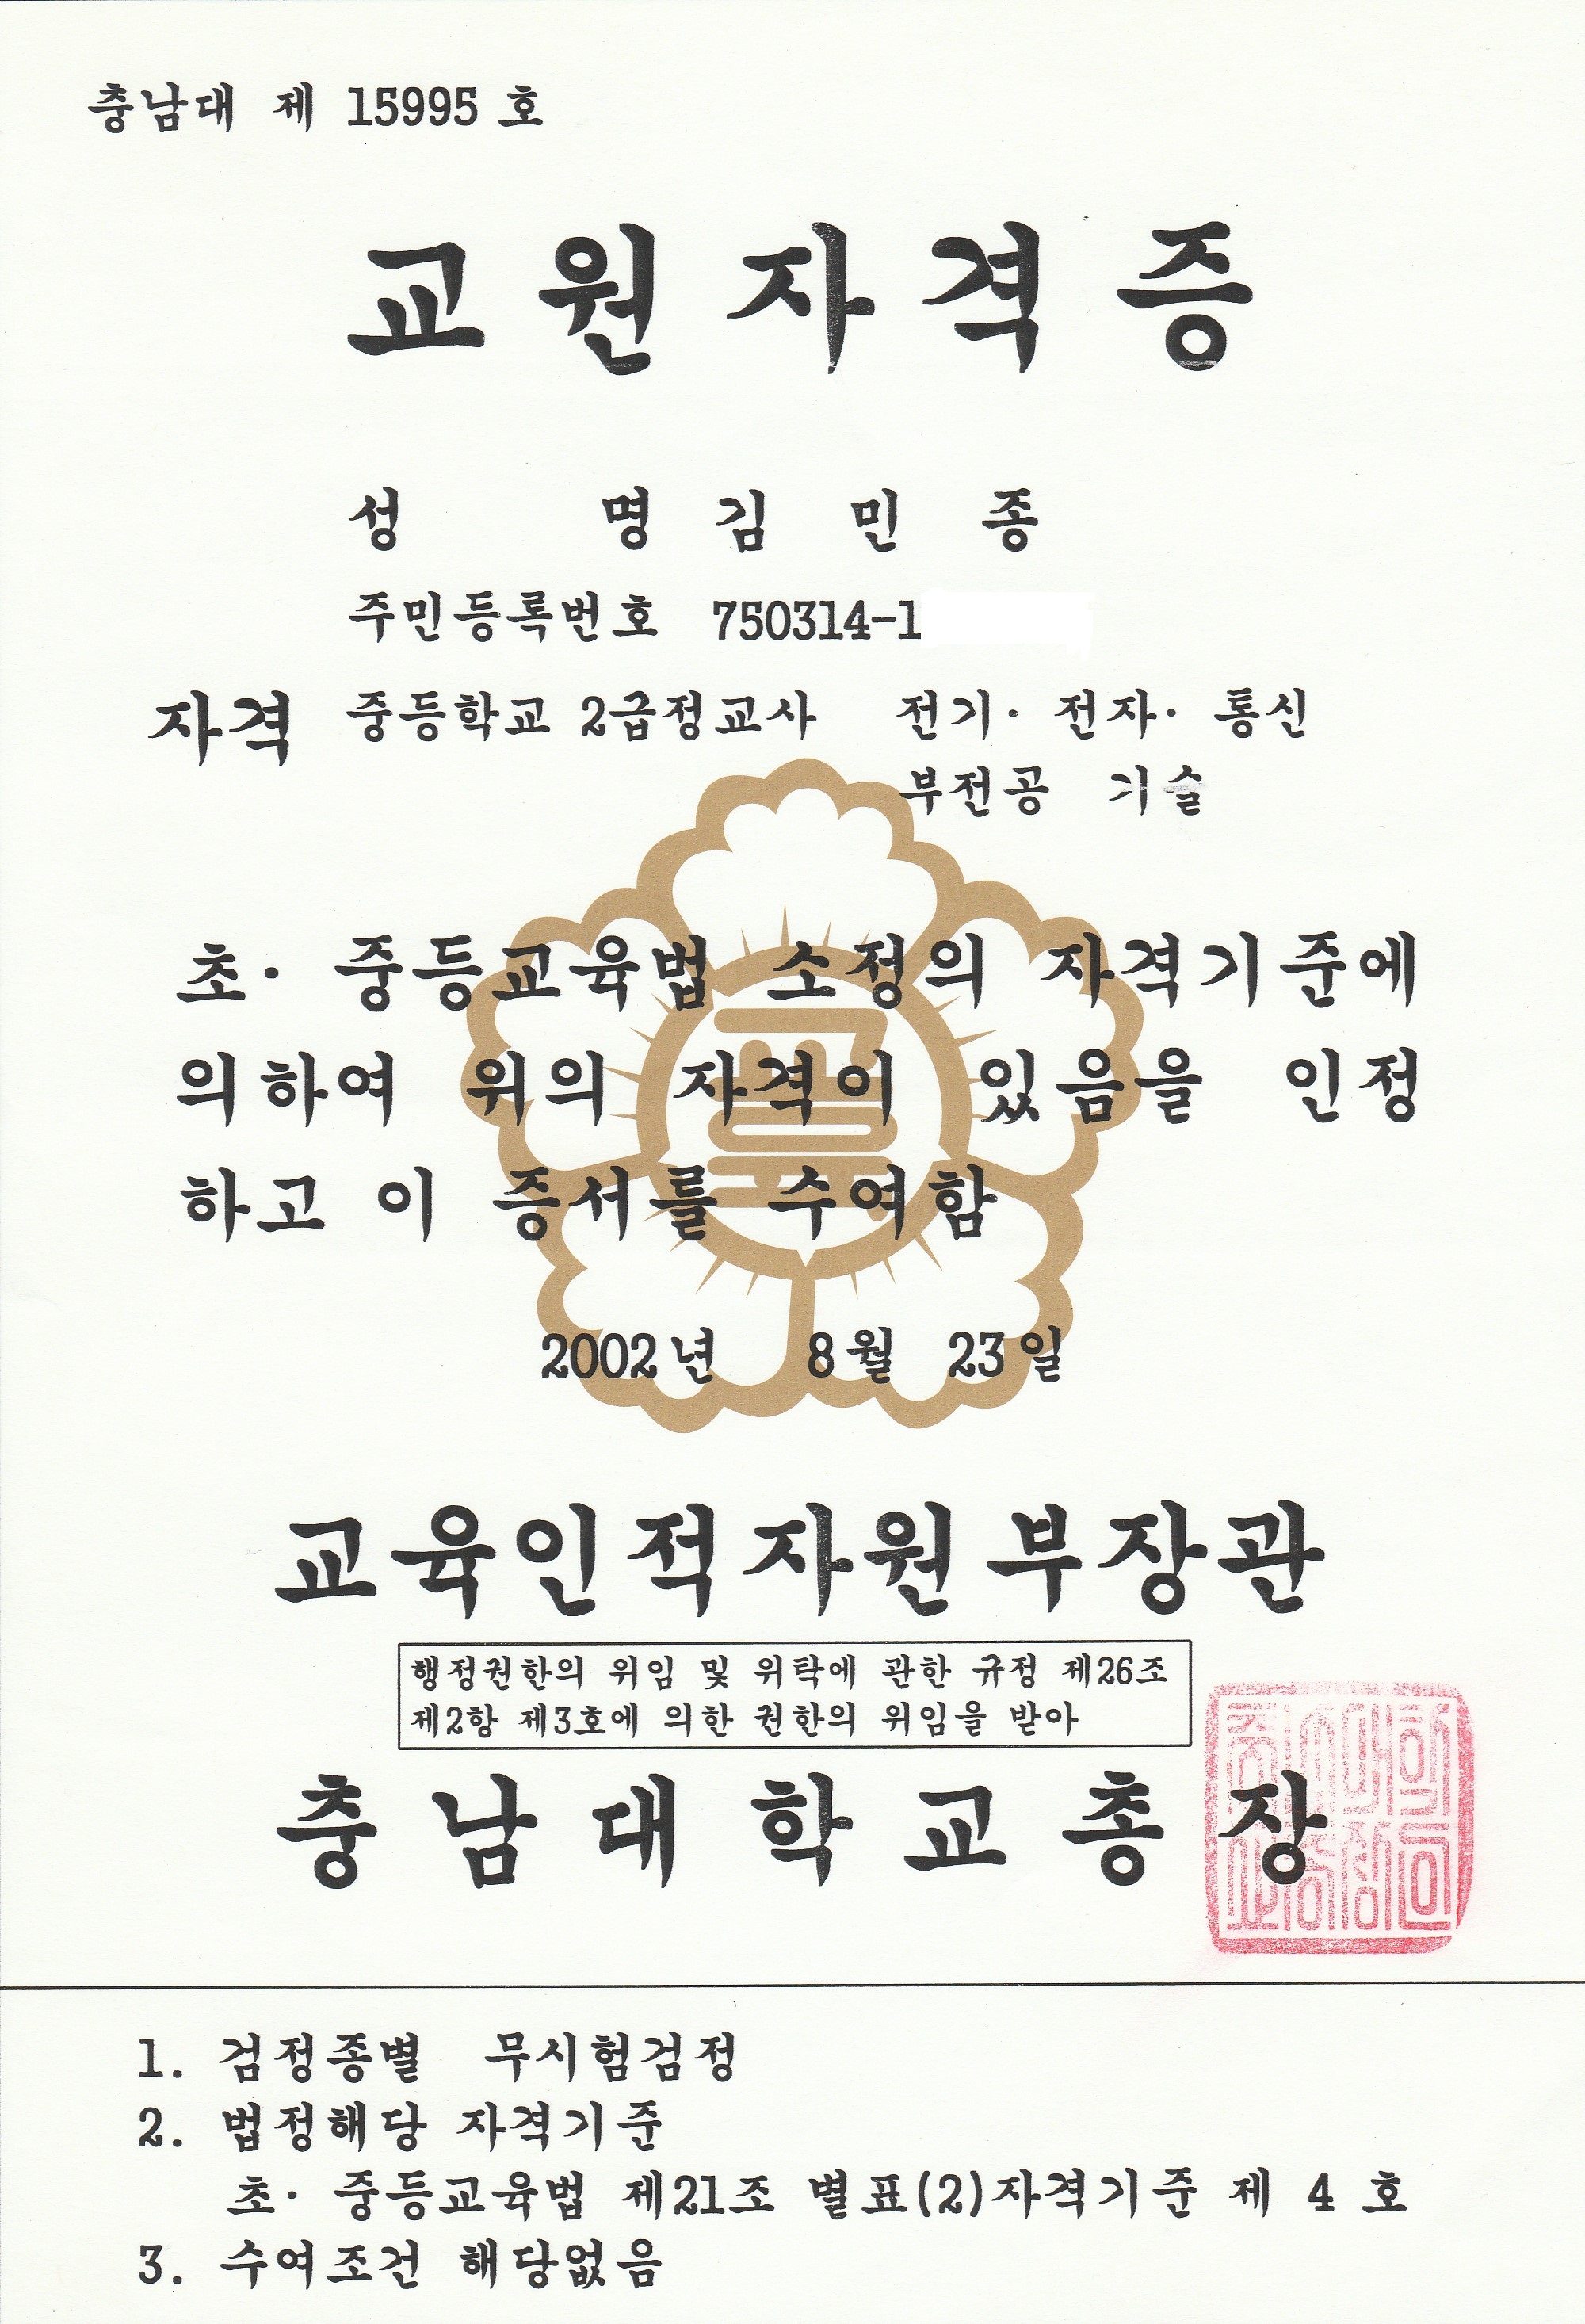 충남대 제 15995 호
교원자격증
성 명 김 민 종
주민등록번호 750314-1
자격 중등학교 2급정교사 전기· 전자· 통신
부전공 기술
초· 중등교육법 소정의 자격기준에
의하여 위의 자격이 있음을 인정
하고 이 증서를 수여함
2002년 8월 23일
교육인적자원부장관
행정권한의 위임 및 위탁에 관한 규정 제26조
제2항 제3호에 의한 권한의 위임을 받아
충남대학교총장
1. 검정종별 무시험검정
2. 법정해당 자격기준
초· 중등교육법 제21조 별표(2)자격기준 제 4 호
3. 수여조건 해당없음